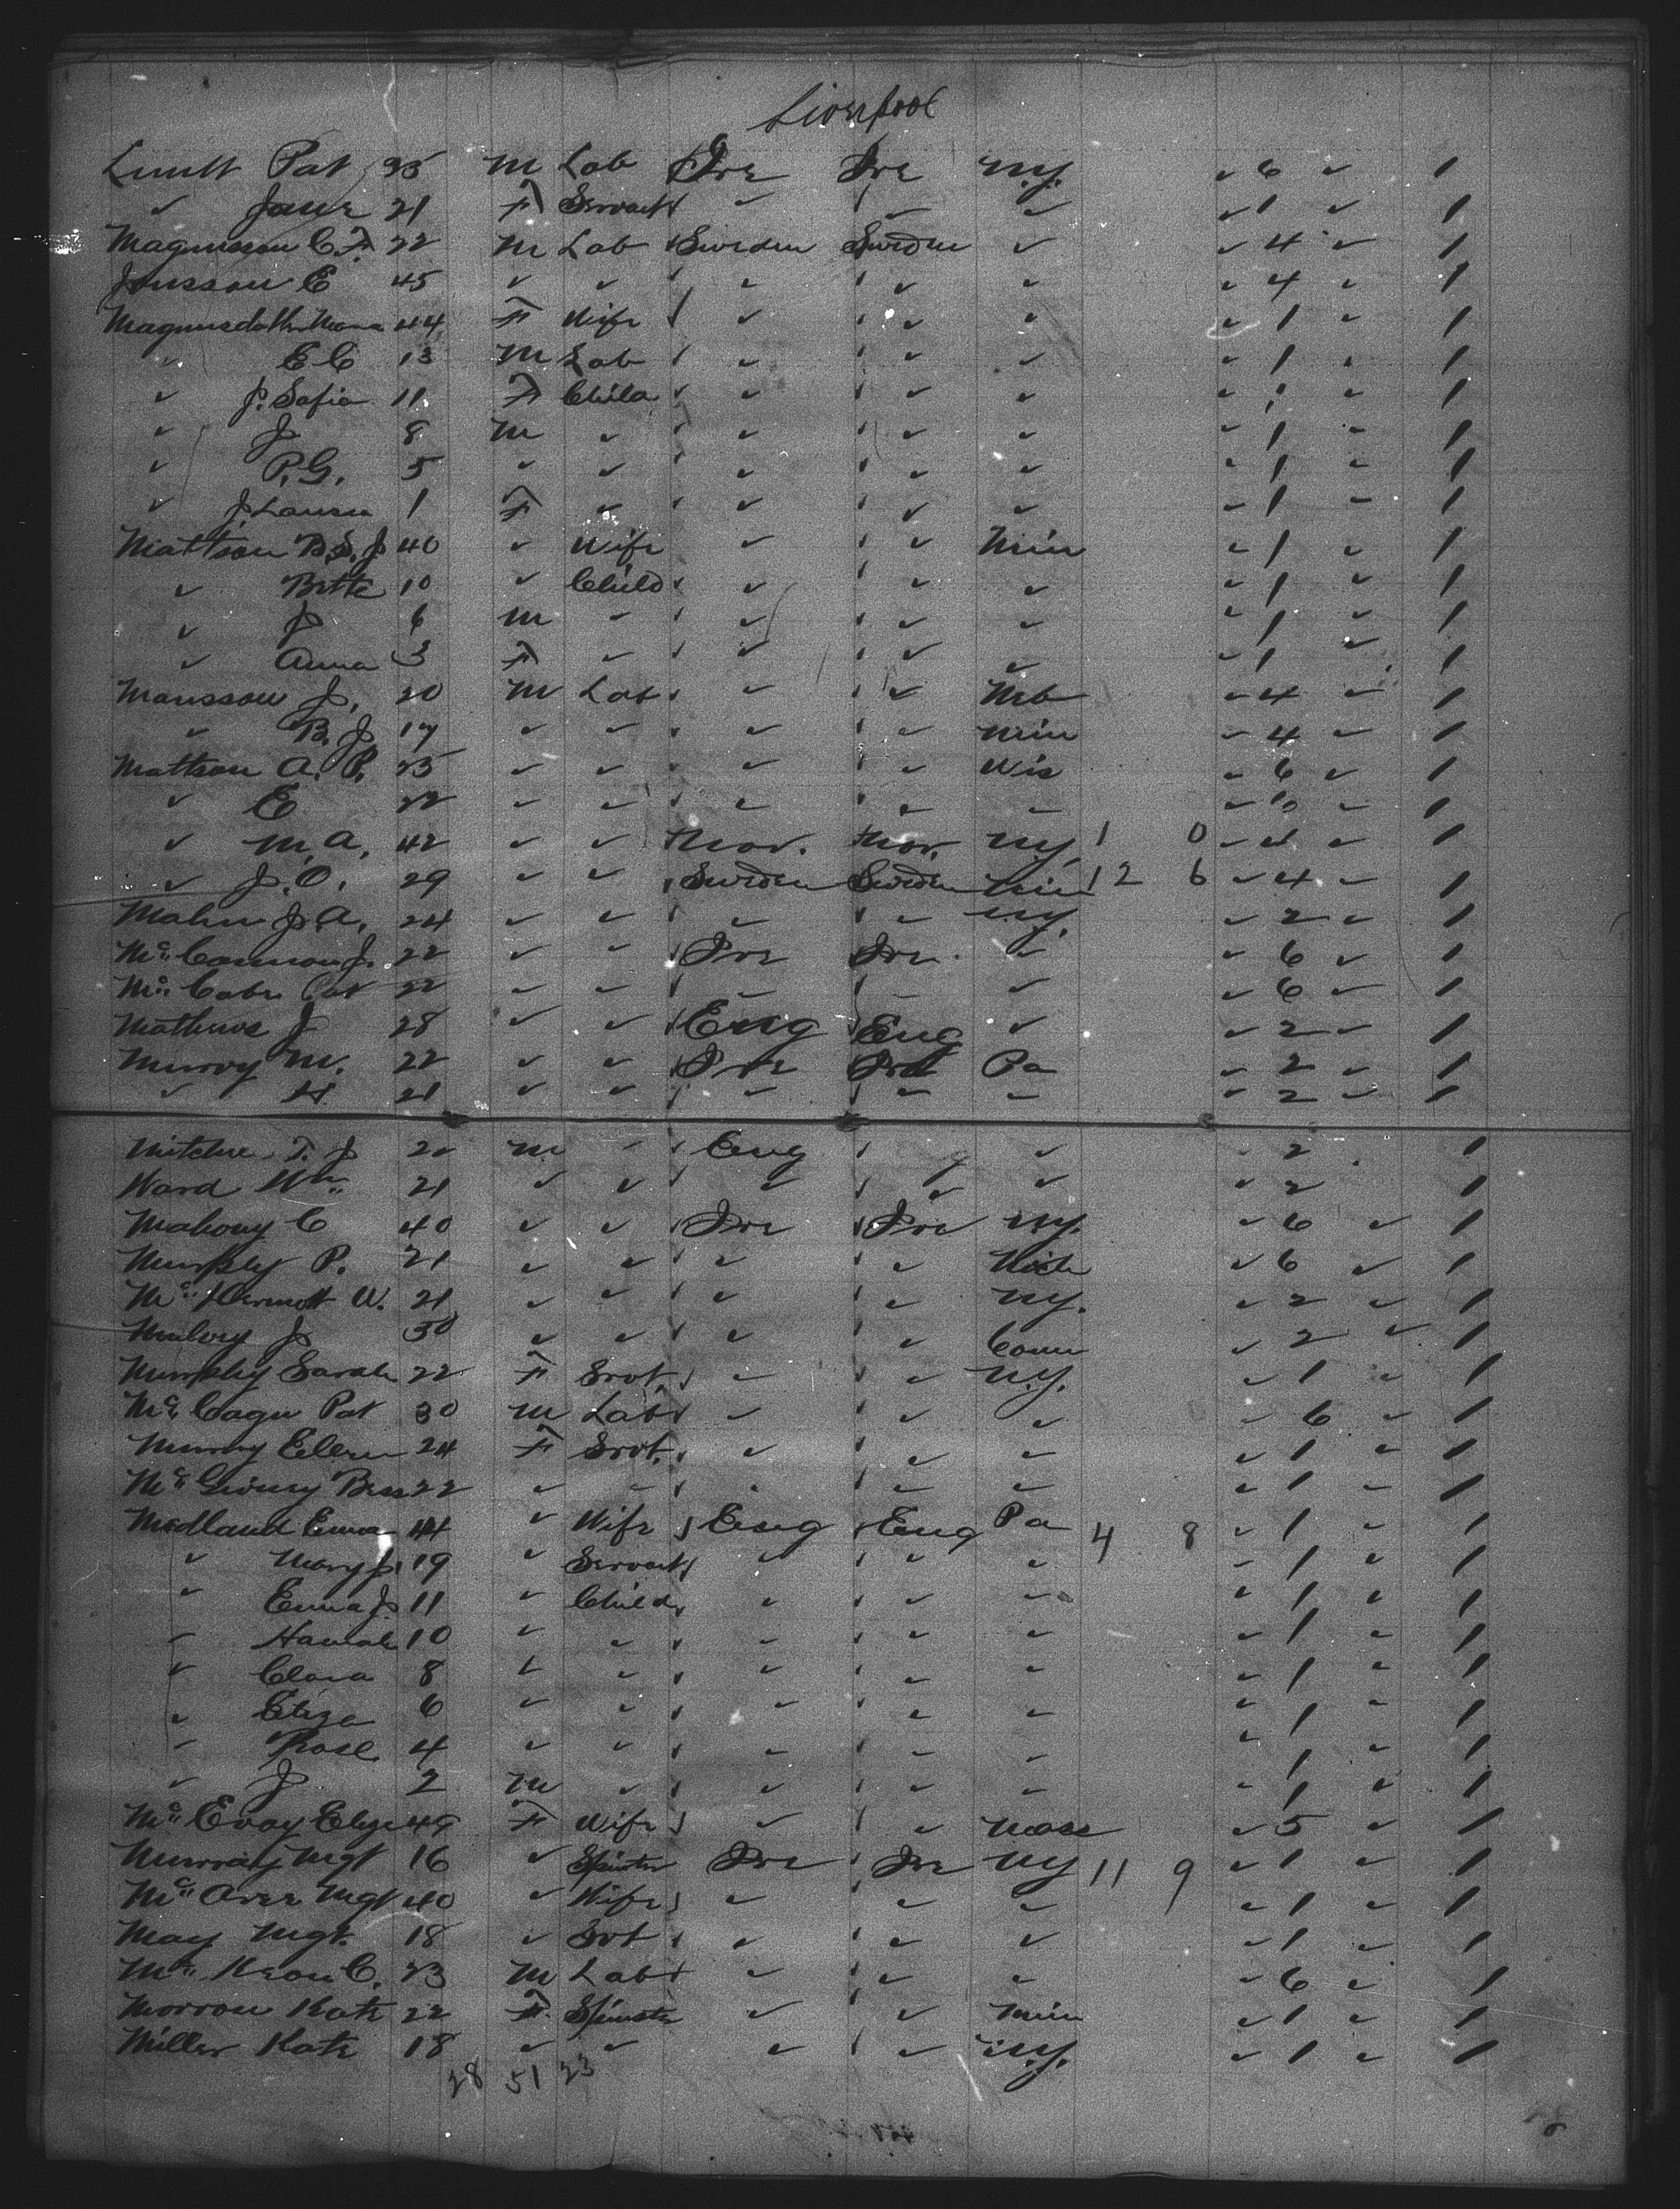 Liverpool
Pat 35 M Lab Ire Ire N.Y. ✓ 6 ✓ 1
✓ Jane 21 F Servant ✓ ✓ ✓ ✓ 1 ✓ 1
Magnusson C.F. 22 M Lab Sweden Sweden ✓ ✓ 4 ✓ 1
Jonsson E 45 ✓ ✓ ✓ ✓ ✓ ✓ 4 ✓ 1
44 F Wife ✓ ✓ ✓ ✓ 1 ✓ 1
✓ E C 13 M Lab ✓ ✓ ✓ ✓ 1 ✓ 1
✓ J. Sofia 11 F Child ✓ ✓ ✓ ✓ 1 ✓ 1
✓ J 8 M ✓ ✓ ✓ ✓ ✓ 1 ✓ 1
✓ P.G. 5 ✓ ✓ ✓ ✓ ✓ ✓ 1 ✓ 1
✓ J 1 F ✓ ✓ ✓ ✓ ✓ 1 ✓ 1
Mattson B.S.J 40 ✓ Wife ✓ ✓ Min ✓ 1 ✓ 1
✓ Britta 10 ✓ Child ✓ ✓ ✓ ✓ 1 ✓ 1
✓ J 6 M ✓ ✓ ✓ ✓ ✓ 1 ✓ 1
✓ Anna 3 F ✓ ✓ ✓ ✓ ✓ 1 ✓ 1
Mansson J. 20 M Lab ✓ ✓ Neb ✓ 4 ✓ 1
✓ B. J 17 ✓ ✓ ✓ ✓ Min ✓ 4 ✓ 1
Mattson A. P. 25 ✓ ✓ ✓ ✓ Wis ✓ 6 ✓ 1
✓ E 22 ✓ ✓ ✓ ✓ ✓ ✓ ✓ 1
✓ M. A. 42 ✓ ✓ Nor. Nor. N.Y. 1 0 ✓ 4 ✓ 1
✓ J. O. 29 ✓ ✓ Sweden Sweden Min 12 6 ✓ 4 ✓ 1
Malm J. A. 24 ✓ ✓ ✓ ✓ N.Y. ✓ 2 ✓ 1
J. 22 ✓ ✓ Ire Ire ✓ ✓ 6 ✓ 1
Mc Cabe Pat 22 ✓ ✓ ✓ ✓ ✓ ✓ 6 ✓ 1
Mathews J 28 ✓ ✓ Eng Eng ✓ ✓ 2 ✓ 1
Murroy M. 22 ✓ ✓ Ire Ire Pa ✓ 2 ✓ 1
✓ H 21 ✓ ✓ ✓ ✓ ✓ ✓ 2 ✓ 1
T. J M ✓ Eng ✓ ✓ 2 1
Ward Wm 21 ✓ ✓ ✓ ✓ ✓ ✓ 2 1
Mahony C 40 ✓ ✓ Ire Ire N.Y. ✓ 6 ✓ 1
Murphy P. 21 ✓ ✓ ✓ ✓ Mich ✓ 6 ✓ 1
Mc Dermott W. 21 ✓ ✓ ✓ ✓ N.Y. ✓ 2 ✓ 1
J 30 ✓ ✓ ✓ ✓ Conn ✓ 2 ✓ 1
Murphy Sarah 22 F Srvt ✓ ✓ N.Y. ✓ 1 ✓ 1
Mc Cagu Pat 30 M Lab ✓ ✓ ✓ ✓ 6 ✓ 1
Murray Ellen 24 F Srvt. ✓ ✓ ✓ ✓ 1 ✓ 1
Bess 22 ✓ ✓ ✓ ✓ ✓ ✓ 1 ✓ 1
Medland Emma 44 ✓ Wife Eng Eng Pa 4 8 ✓ 1 ✓ 1
✓ Mary J. 19 ✓ Servant ✓ ✓ ✓ ✓ 1 ✓ 1
✓ Emma J. 11 ✓ Child ✓ ✓ ✓ ✓ 1 ✓ 1
✓ Hannah 10 ✓ ✓ ✓ ✓ ✓ ✓ 1 ✓ 1
✓ Clara 8 ✓ ✓ ✓ ✓ ✓ ✓ 1 ✓ 1
✓ Eliza 6 ✓ ✓ ✓ ✓ ✓ ✓ 1 ✓ 1
✓ Rose 4 ✓ ✓ ✓ ✓ ✓ ✓ 1 ✓ 1
✓ J 2 M ✓ ✓ ✓ ✓ ✓ 1 ✓ 1
Mc Evoy Eliza 49 F Wife ✓ ✓ Mass ✓ 5 ✓ 1
Murray Mgt 16 ✓ Spinster Ire Ire N.Y 11 9 ✓ 1 ✓ 1
Mc Mgt 40 ✓ Wife ✓ ✓ ✓ ✓ 1 ✓ 1
May Mgt. 18 ✓ Svt ✓ ✓ ✓ ✓ 1 ✓ 1
Mc Keon C. 23 M Lab ✓ ✓ ✓ ✓ 6 ✓ 1
Morrow Kate 22 F Spinster ✓ ✓ Min ✓ 1 ✓ 1
Miller Kate 18 ✓ ✓ ✓ ✓ N.Y. ✓ 1 ✓ 1
28 51 23